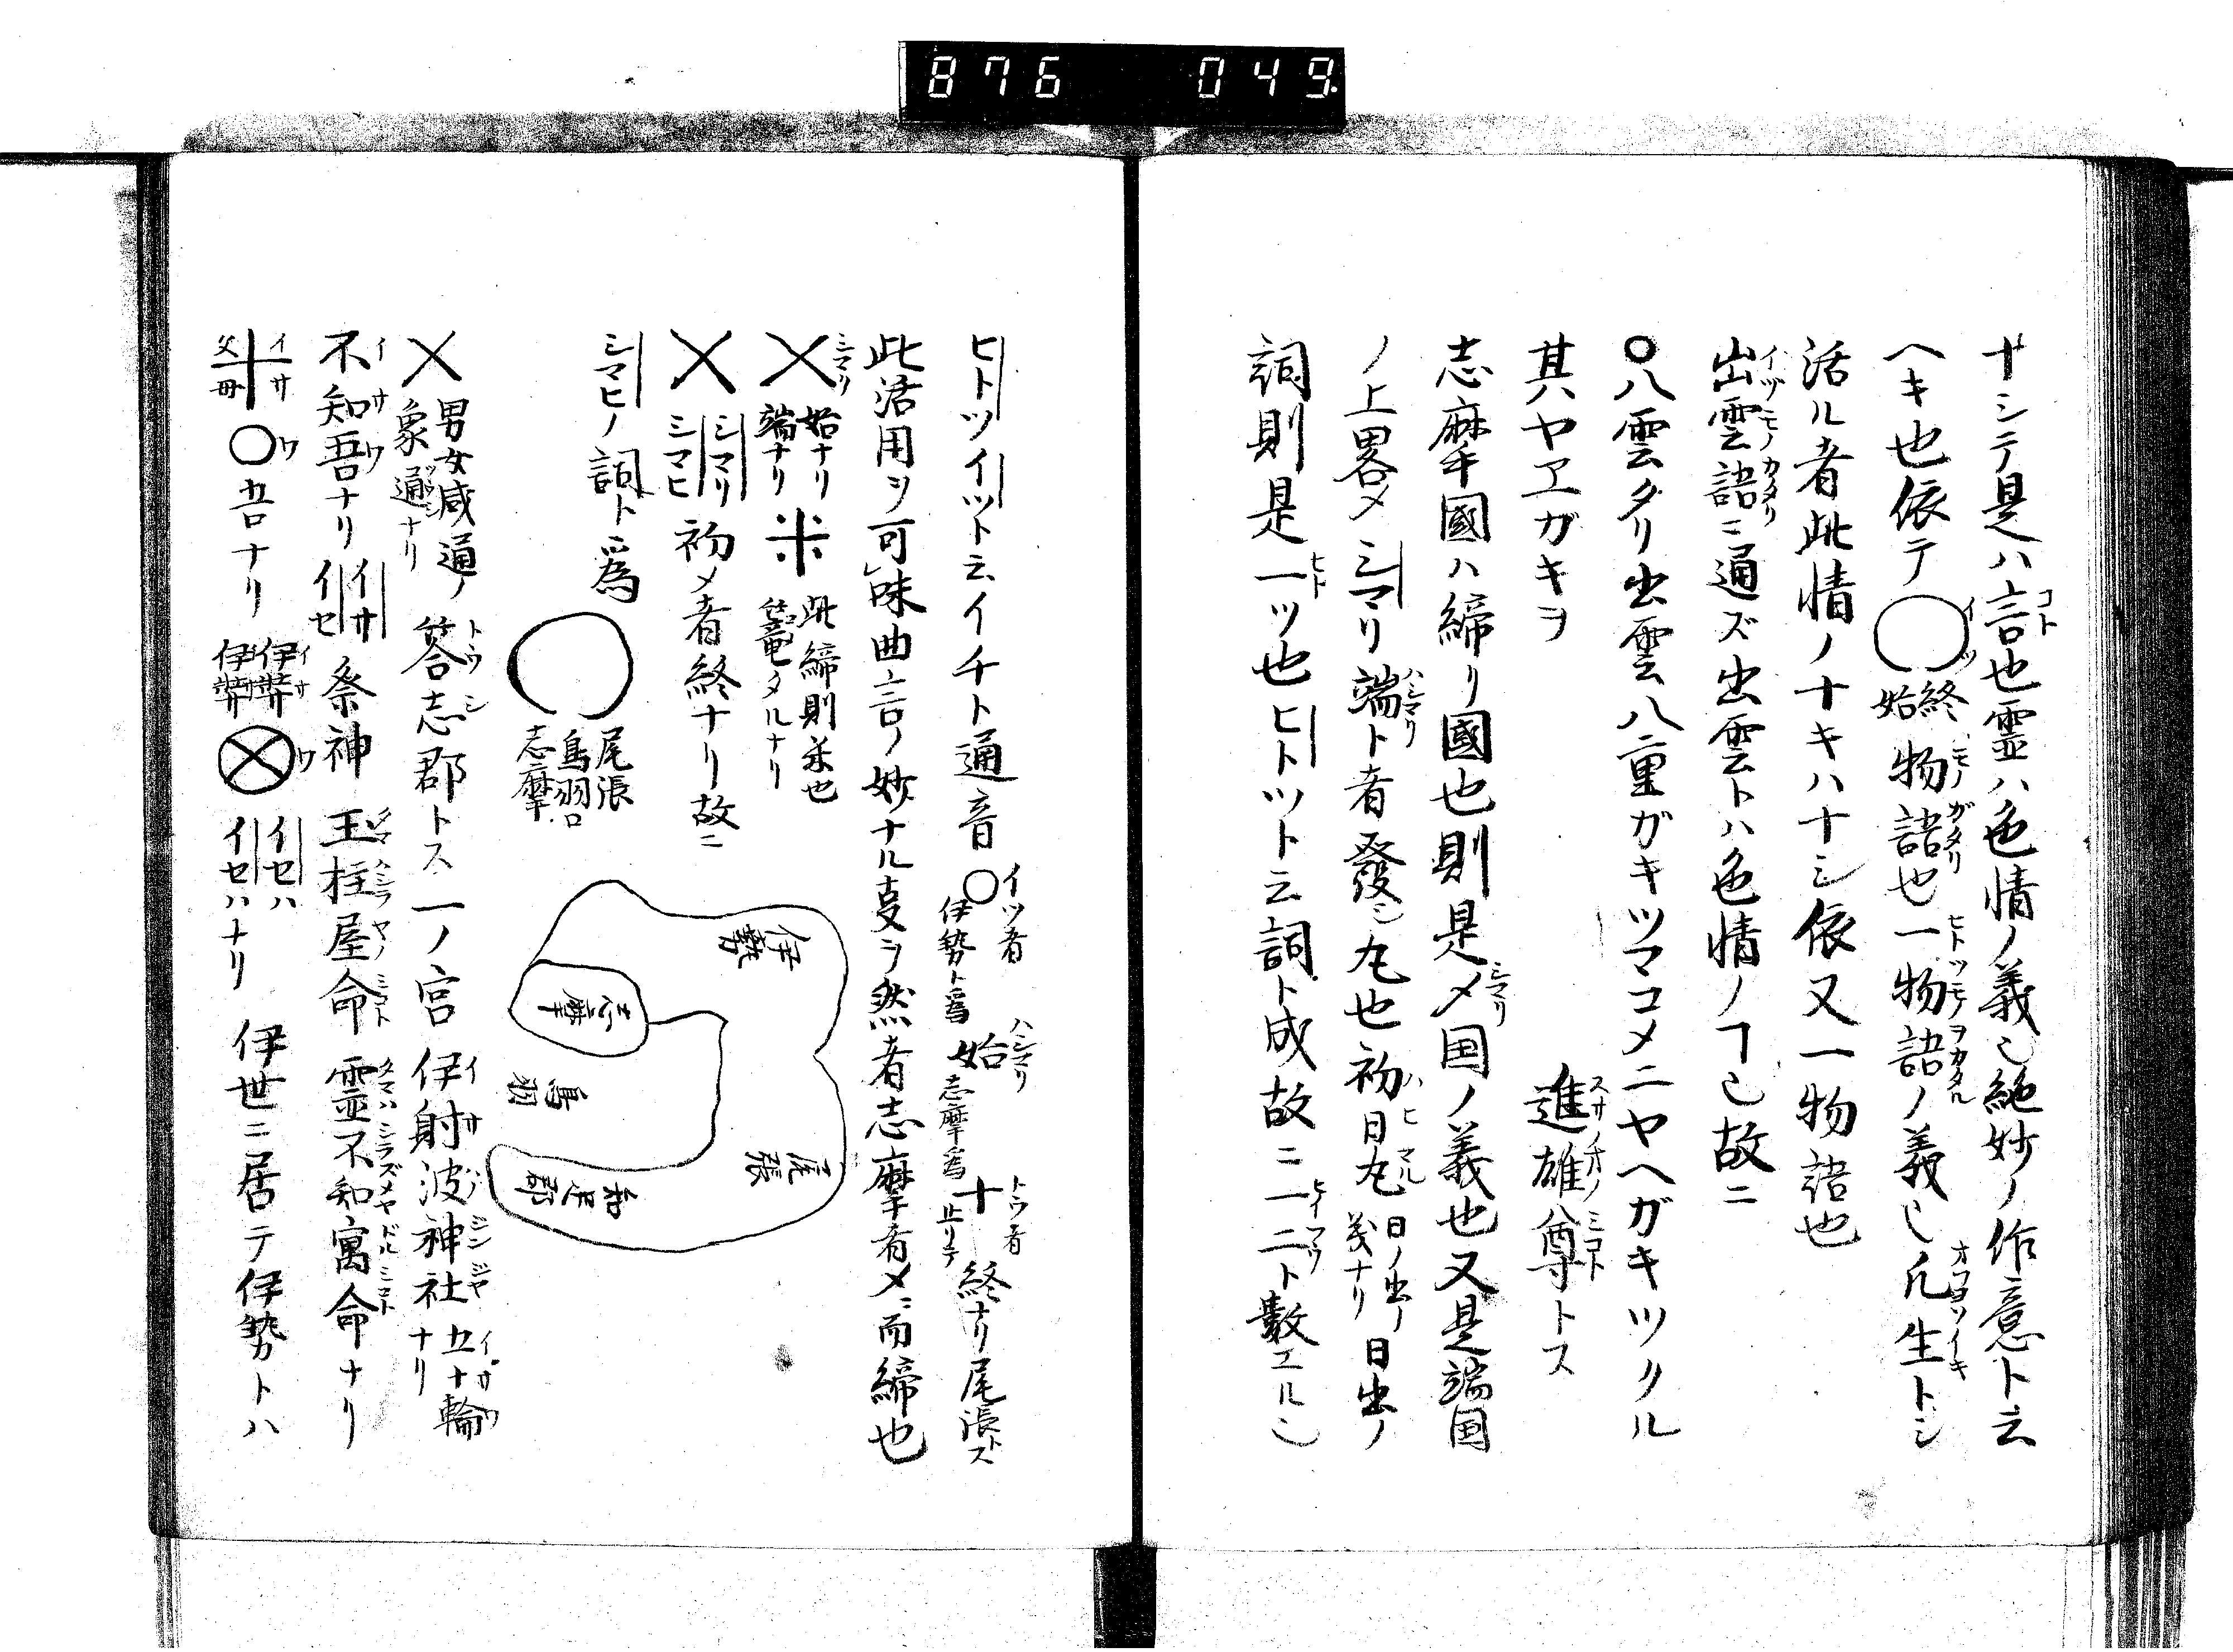 876 049
ナシテ是ハ言也霊ハ色情ノ義也絶妙ノ作意ト云
ヘキ也依テ〇終始物語也一物語ノ義也凡生トシ
活ル者此情ノナキハナシ依又一物語也
出雲語ニ通ズ出雲トハ色情ノヿ也故ニ
〇八雲タリ出雲八重ガキツマコメニヤヘガキツクル
其ハヤヱガキヲ 進雄尊トス
志摩國ハ締リ國也則是〆国ノ義也又是端国
ノ上畧〆シマリ端ト者發シ丸也初日丸日ノ出ノ義ナリ日出ノ
詞則是一ツ也ヒトツト云詞ト成故ニ一二ト數エル也
ヒトツイツト云イチト通音〇イツ者伊勢ト為始志摩為十トウ者止リテ終ナリ尾張トス
此活用ヲ可味曲言ノ妙ナル叓ヲ然者志摩者〆ニ而締也
シマリ
㐅始ナリ端ナリ米此締則米也篭タルナリ
㐅シマリシマヒ初メ者終ナリ故ニ
シマヒノ詞ト為〇尾張鳥羽口志摩
伊勢
志摩
鳥羽
尾張
知足郡
㐅男女感通ノ象通ナリ答志郡トス一ノ宮伊射波神社五十輪ナリ
不知吾ナリイサイセ祭神玉柱屋命霊不知寓命ナリ
イサ父母〇吾ナリ伊弉伊弉ワイセハイセハナリ伊世ニ居テ伊勢トハ